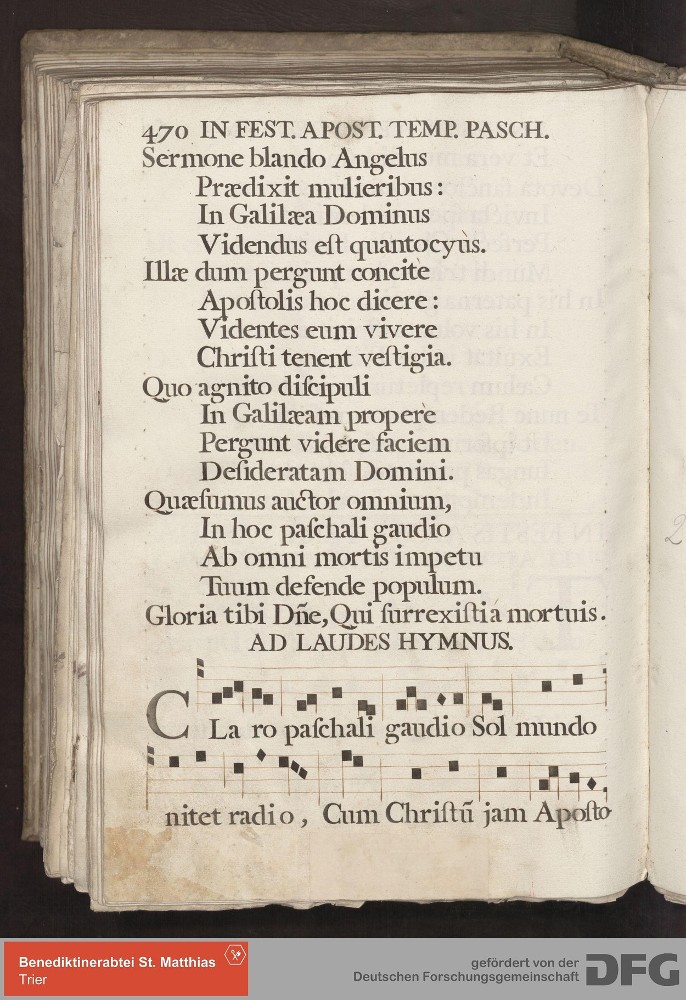 470 IN FEST. APOST. TEMP. PASCH.
Sermone blando Angelus
Prædixit mulieribus:
In Galilæa Dominus
Videndus eſt quantocyùs.
Illæ dum pergunt concitè
Apoſtolis hoc dicere:
Videntes eum vivere
Chriſti tenent veſtigia.
Quo agnito diſcipuli
In Galilæam properè
Pergunt vidére faciem
Deſideratam Domini.
Quæſumus auctor omnium,
In hoc paſchali gaudio
Ab omni mortis impetu
Tuum defende populum.
Gloria tibi Dñe, Qui ſurrexiſti à mortuis.
AD LAUDES HYMNUS.
CLa ro paſchali gaudio Sol mundo
nitet radio, Cum Chriſtū jam Apoſto-
Benediktinerabtei St. Matthias
Trier
gefördert von der
Deutschen Forschungsgemeinschaft
DFG